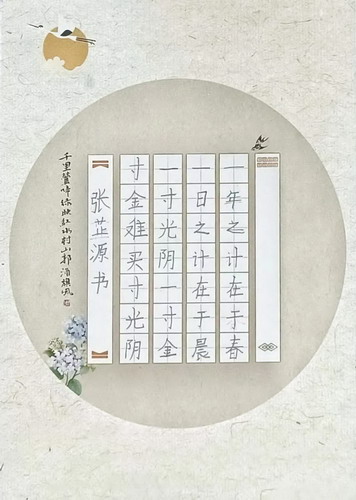 一年之计在于春
一日之计在于晨
一寸光阴一寸金
寸金难买寸光阴
张芷源书
千里莺啼绿映红水村山郭酒旗风